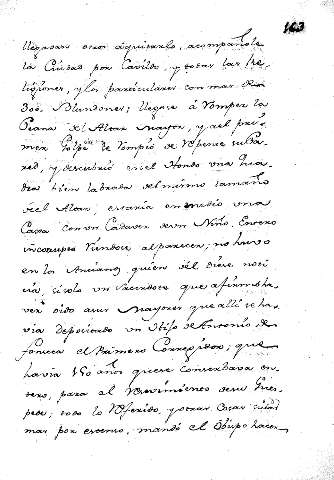 163
llegasen otros á quitarlo, acompañole
la Ciudad por Cavildo, y todas las Re-
ligiones, y los particulares con mas de
dos Blandones; llegose á romper la
Peana del Altar Mayor, y al pri-
mer Golpe se rompio de repente su Pa-
red, y descubrió en el Hondo una Pie-
dra bien labrada del mismo tamaño
de el Altar, estaria en medio una
Caxa con un Cadaver de un Niño, Entero
incorrupto al parecer; no huvo
en los Ancianos quien dél diese noti-
cia, solo un Sacerdote que afirmó ha-
ver oido a sus Mayores que alli se ha-
via depositado un Hijo de Antonio de
Fonseca el Primero Corregidor; que
havia 150 años que se conservava en-
tero, para el de su Hues-
ped; todo lo referido, y otras cosas
mas por estenso, mandó el Obispo hacer